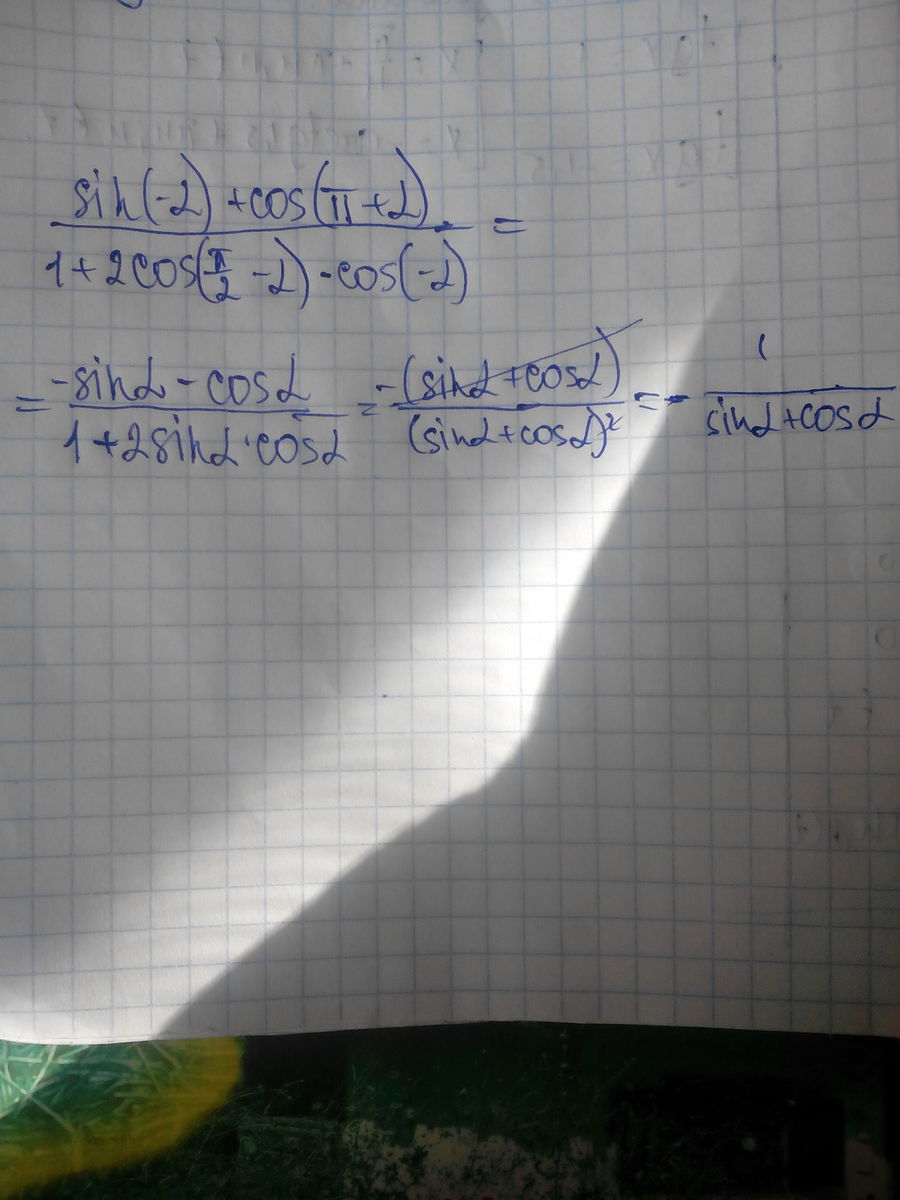 sin(-α) + cos(π + α)
1 + 2cos(π/2 - α) · cos(-α) =
= -sinα - cosα / 1 + 2sinα · cosα = -(sinα + cosα) / (sinα + cosα)² = - 1 / sinα + cosα